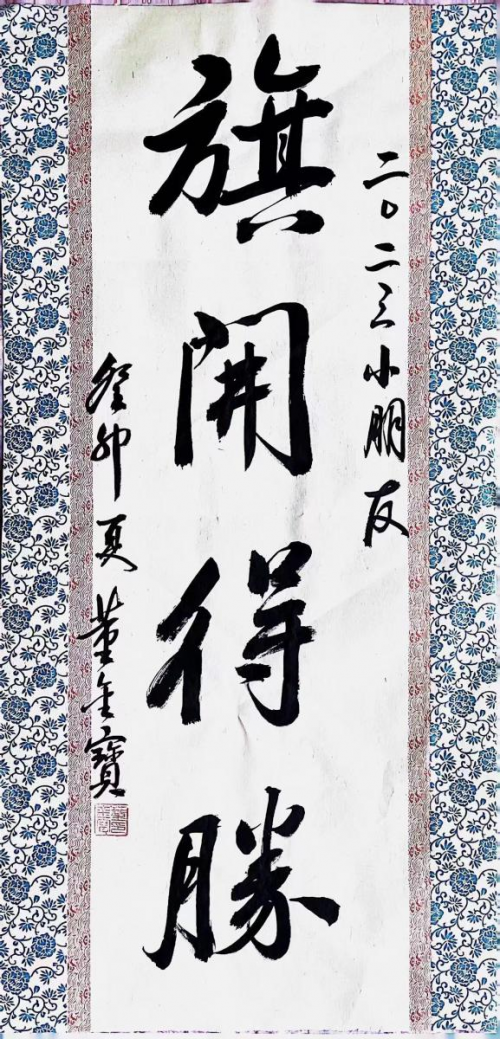 二〇二三小朋友
旗開得勝
癸卯夏 董金寶